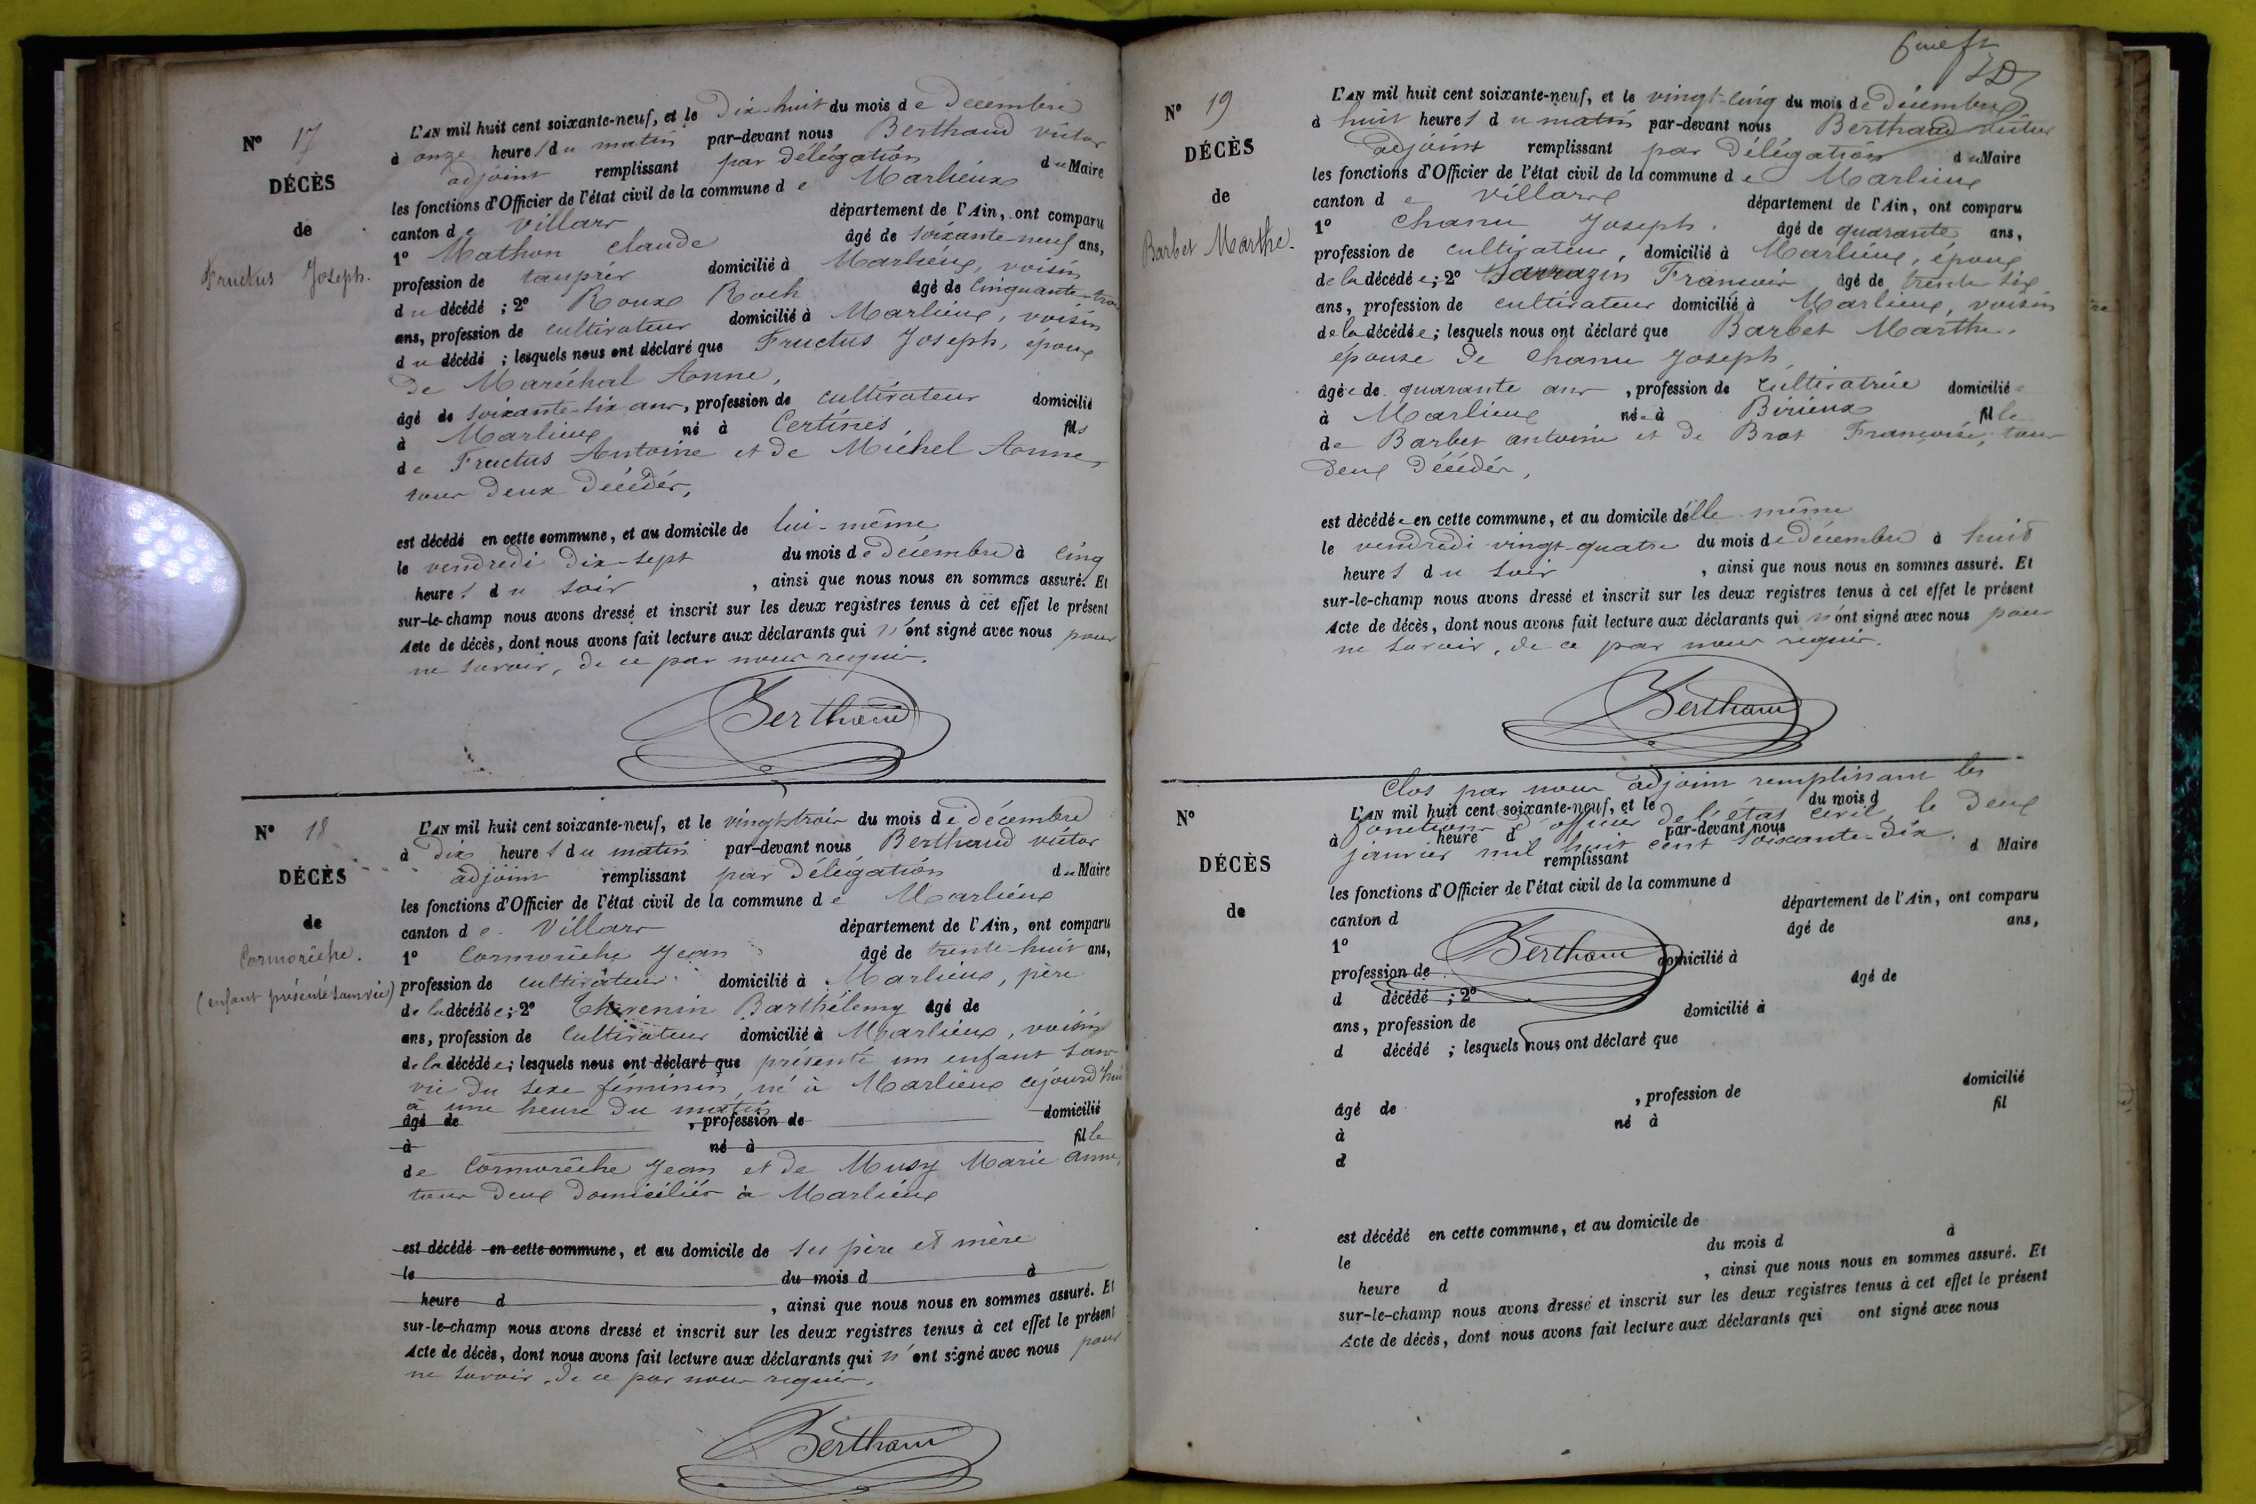 N° 17
DÉCÈS
de
Fructus Joseph.
L'AN mil huit cent soixante-neuf, et le Dix-huit du mois de Décembre
à onze heures du matin par-devant nous Berthaud victor
adjoint remplissant par délégation du Maire
les fonctions d'Officier de l'état civil de la commune de Marlieux
canton de Villars département de l'Ain, ont comparu
1° Mathon Claude âgé de soixante-neuf ans,
profession de taupier domicilié à Marlieux, voisin
du décédé ; 2° Roux Roch âgé de cinquante-trois
ans, profession de cultivateur domicilié à Marlieux, voisin
du décédé ; lesquels nous ont déclaré que Fructus Joseph, époux
de Maréchal Anne,
âgé de soixante-six ans, profession de cultivateur domicilié
à Marlieux né à Certines fils
de Fructus Antoine et de Michel Anne,
tous deux décédés,
est décédé en cette commune, et au domicile de lui-même
le vendredi dix-sept du mois de décembre à cinq
heures du soir , ainsi que nous nous en sommes assuré. Et
sur-le-champ nous avons dressé et inscrit sur les deux registres tenus à cet effet le présent
Acte de décès, dont nous avons fait lecture aux déclarants qui n'ont signé avec nous pour
ne savoir, de ce par nous requis.
Berthaud
N° 18
DÉCÈS
de
Cormorêche.
(enfant présenté sans vie)
L'AN mil huit cent soixante-neuf, et le vingt-trois du mois de décembre
à dix heures du matin par-devant nous Berthaud victor
adjoint remplissant par délégation du Maire
les fonctions d'Officier de l'état civil de la commune de Marlieux
canton de Villars département de l'Ain, ont comparu
1° Cormorêche Jean âgé de trente-huit ans,
profession de cultivateur domicilié à Marlieux, père
de la décédée ; 2° Thevenin Barthélemy âgé de
ans, profession de cultivateur domicilié à Marlieux, voisin
de la décédée ; lesquels nous ont déclaré que présenté un enfant sans
vie du sexe féminin, né à Marlieux cejourd'hui
à une heure du matin
âgé de , profession de domicilié
à né à fille
de Cormorêche Jean et de Musy Marie Anne,
tous deux domiciliés à Marlieux
est décédé en cette commune, et au domicile de ses père et mère
le du mois d à
heure d , ainsi que nous nous en sommes assuré. Et
sur-le-champ nous avons dressé et inscrit sur les deux registres tenus à cet effet le présent
Acte de décès, dont nous avons fait lecture aux déclarants qui n'ont signé avec nous pour
ne savoir, de ce par nous requis.
Berthaud
N° 19
DÉCÈS
de
Barbet Marthe.
L'AN mil huit cent soixante-neuf, et le vingt-cinq du mois de décembre
à huit heures du matin par-devant nous Berthaud victor
adjoint remplissant par délégation du Maire
les fonctions d'Officier de l'état civil de la commune de Marlieux
canton de Villars département de l'Ain, ont comparu
1° Chanu Joseph. âgé de quarante ans,
profession de cultivateur, domicilié à Marlieux, époux
de la décédée ; 2° Sarrazin François âgé de trente six
ans, profession de cultivateur domicilié à Marlieux, voisin
de la décédée ; lesquels nous ont déclaré que Barbet Marthe,
épouse de Chanu Joseph
âgée de quarante ans , profession de cultivatrice domiciliée
à Marlieux née à Birieux fille
de Barbet antoine et de Brot Françoise, tous
deux décédés,
est décédée en cette commune, et au domicile d'elle même
le vendredi vingt-quatre du mois de décembre à huit
heures du soir , ainsi que nous nous en sommes assuré. Et
sur-le-champ nous avons dressé et inscrit sur les deux registres tenus à cet effet le présent
Acte de décès, dont nous avons fait lecture aux déclarants qui n'ont signé avec nous pour
ne savoir, de ce par nous requis.
Berthaud
Clos par nous adjoint remplissant les
fonctions d'officier de l'état civil, le deux
janvier mil huit cent soixante-dix.
Berthaud
N°
DÉCÈS
de
L'AN mil huit cent soixante-neuf, et le du mois d
à heure d par-devant nous
remplissant d Maire
les fonctions d'Officier de l'état civil de la commune d
canton d département de l'Ain, ont comparu
1° âgé de ans,
profession de domicilié à
d décédé ; 2° âgé de
ans, profession de domicilié à
d décédé ; lesquels nous ont déclaré que
âgé de , profession de domicilié
à né à fil
d
est décédé en cette commune, et au domicile de
le du mois d à
heure d , ainsi que nous nous en sommes assuré. Et
sur-le-champ nous avons dressé et inscrit sur les deux registres tenus à cet effet le présent
Acte de décès, dont nous avons fait lecture aux déclarants qui ont signé avec nous